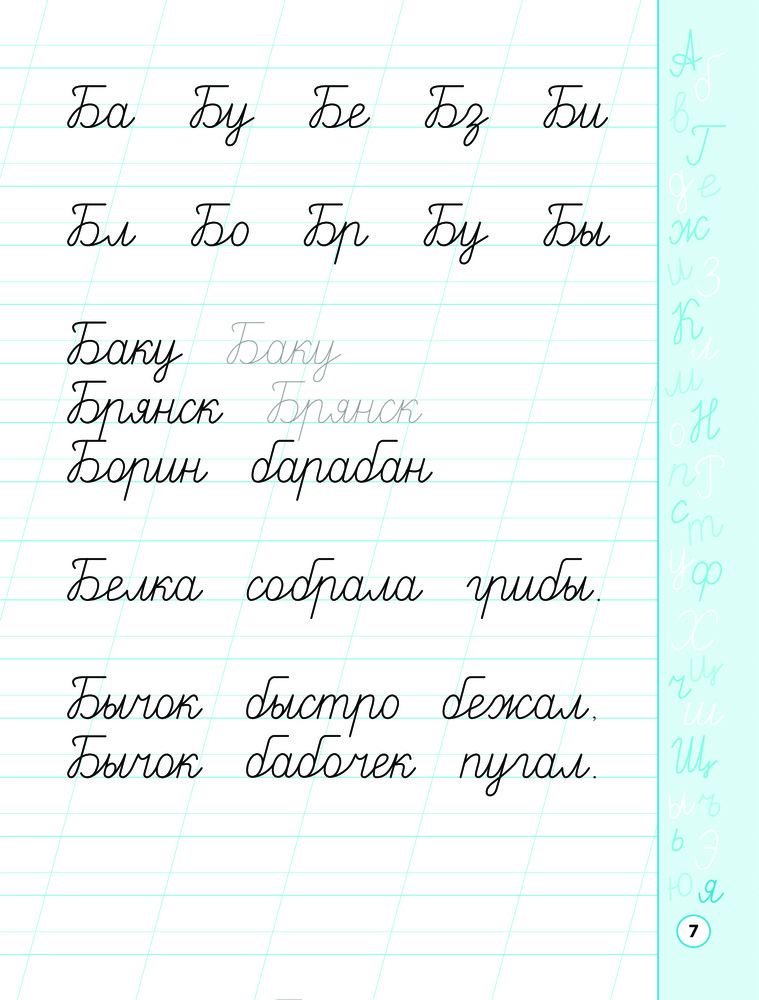 Ба Бу Бе Бз Би
Бл Бо Бр Бу Бы
Баку Баку
Брянск Брянск
Борин барабан
Белка собрала грибы.
Бычок быстро бежал,
Бычок бабочек пугал.
А б
в
Г
д е
ж
и З
К
л
м
о Н
п Р
с
т
у ф
Х
ч Ц
ш
Щ
ы ъ
ь Э
Ю я
7